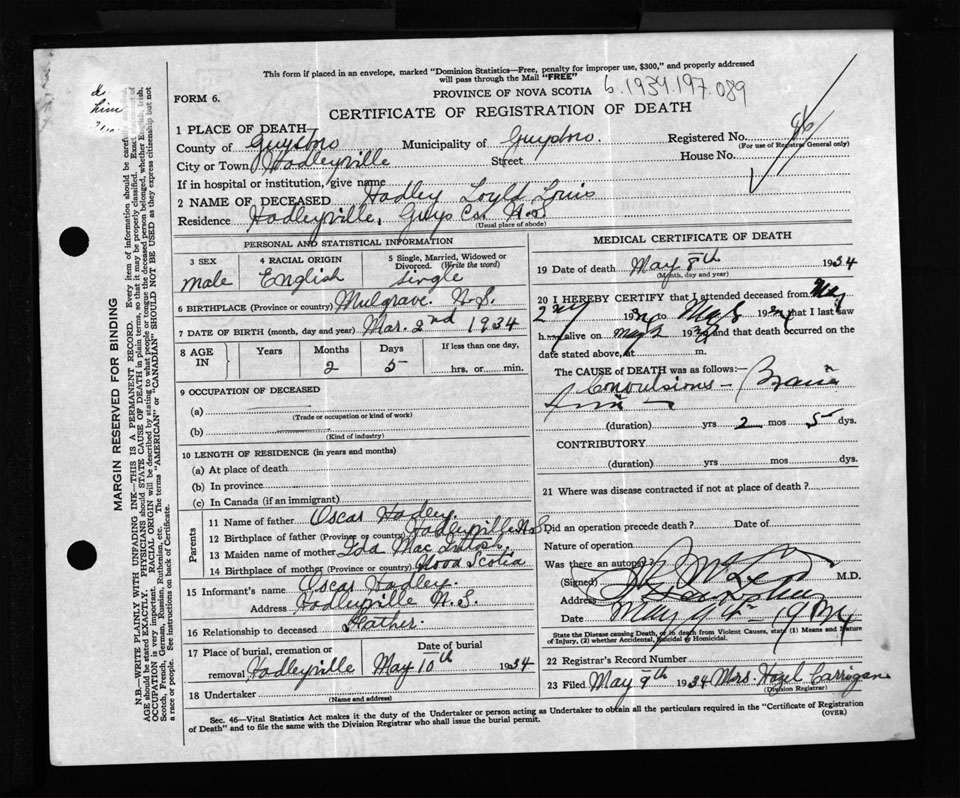 This form if placed in an envelope, marked "Dominion Statistics—Free, penalty for improper use, $300," and properly addressed
will pass through the Mail "FREE"
FORM 6.
PROVINCE OF NOVA SCOTIA 6.1934.197.089
CERTIFICATE OF REGISTRATION OF DEATH
1 PLACE OF DEATH
County of Guysboro Municipality of Guysboro Registered No.
(For use of Registrar General only)
City or Town Hadleyville Street House No.
If in hospital or institution, give name
2 NAME OF DECEASED Hadley Loyld Louis
Residence Hadleyville, Guys Co. N.S
(Usual place of abode)
PERSONAL AND STATISTICAL INFORMATION
3 SEX 4 RACIAL ORIGIN 5 Single, Married, Widowed or
Divorced. (Write the word)
male English Single
6 BIRTHPLACE (Province or country) Mulgrave. N.S.
7 DATE OF BIRTH (month, day and year) Mar. 2nd 1934
8 AGE IN Years Months Days If less than one day,
2 5 hrs. or min.
9 OCCUPATION OF DECEASED
(a)
(Trade or occupation or kind of work)
(b)
(Kind of industry)
10 LENGTH OF RESIDENCE (in years and months)
(a) At place of death
(b) In province
(c) In Canada (if an immigrant)
Parents
11 Name of father Oscar Hadley
12 Birthplace of father (Province or country) Hadleyville N.S
13 Maiden name of mother Ida MacIntosh
14 Birthplace of mother (Province or country) Nova Scotia
15 Informant's name Oscar Hadley.
Address Hadleyville N.S.
16 Relationship to deceased Father.
17 Place of burial, cremation or Date of burial
removal Hadleyville May 10th 1934
18 Undertaker
(Name and address)
MEDICAL CERTIFICATE OF DEATH
19 Date of death May 8th 1934
(Month, day and year)
20 I HEREBY CERTIFY that I attended deceased from May
2nd 1934 to May 8 1934 that I last saw
h alive on May 2 1934 and that death occurred on the
date stated above, at m.
The CAUSE of DEATH was as follows:—
Convulsions —
(duration) yrs 2 mos 5 dys.
CONTRIBUTORY
(duration) yrs mos dys.
21 Where was disease contracted if not at place of death?
Did an operation precede death? Date of
Nature of operation
Was there an autopsy?
(Signed) M.D.
Address
Date May 9th 1934
State the Disease causing Death, or in death from Violent Causes, state (1) Means and Nature
of Injury, (2) whether Accidental, Suicidal or Homicidal.
22 Registrar's Record Number
23 Filed May 9th 1934 Mrs. Hazel Carrigan
(Division Registrar)
Sec. 46—Vital Statistics Act makes it the duty of the Undertaker or person acting as Undertaker to obtain all the particulars required in the "Certificate of Registration
of Death" and to file the same with the Division Registrar who shall issue the burial permit. (OVER)
MARGIN RESERVED FOR BINDING
N.B.—WRITE PLAINLY WITH UNFADING INK—THIS IS A PERMANENT RECORD. Every item of information should be
AGE should be stated EXACTLY. PHYSICIANS should STATE CAUSE OF DEATH in plain terms, so that it may be properly classified. Exact
OCCUPATION is very important. RACIAL ORIGIN will be described by stating to what people or tongue the deceased person belonged, whether English, Irish,
Scotch, French, German, Russian, Ruthenian, etc. The terms "AMERICAN" or "CANADIAN" SHOULD NOT BE USED as they express citizenship but not
a race or people. See instructions on back of Certificate.